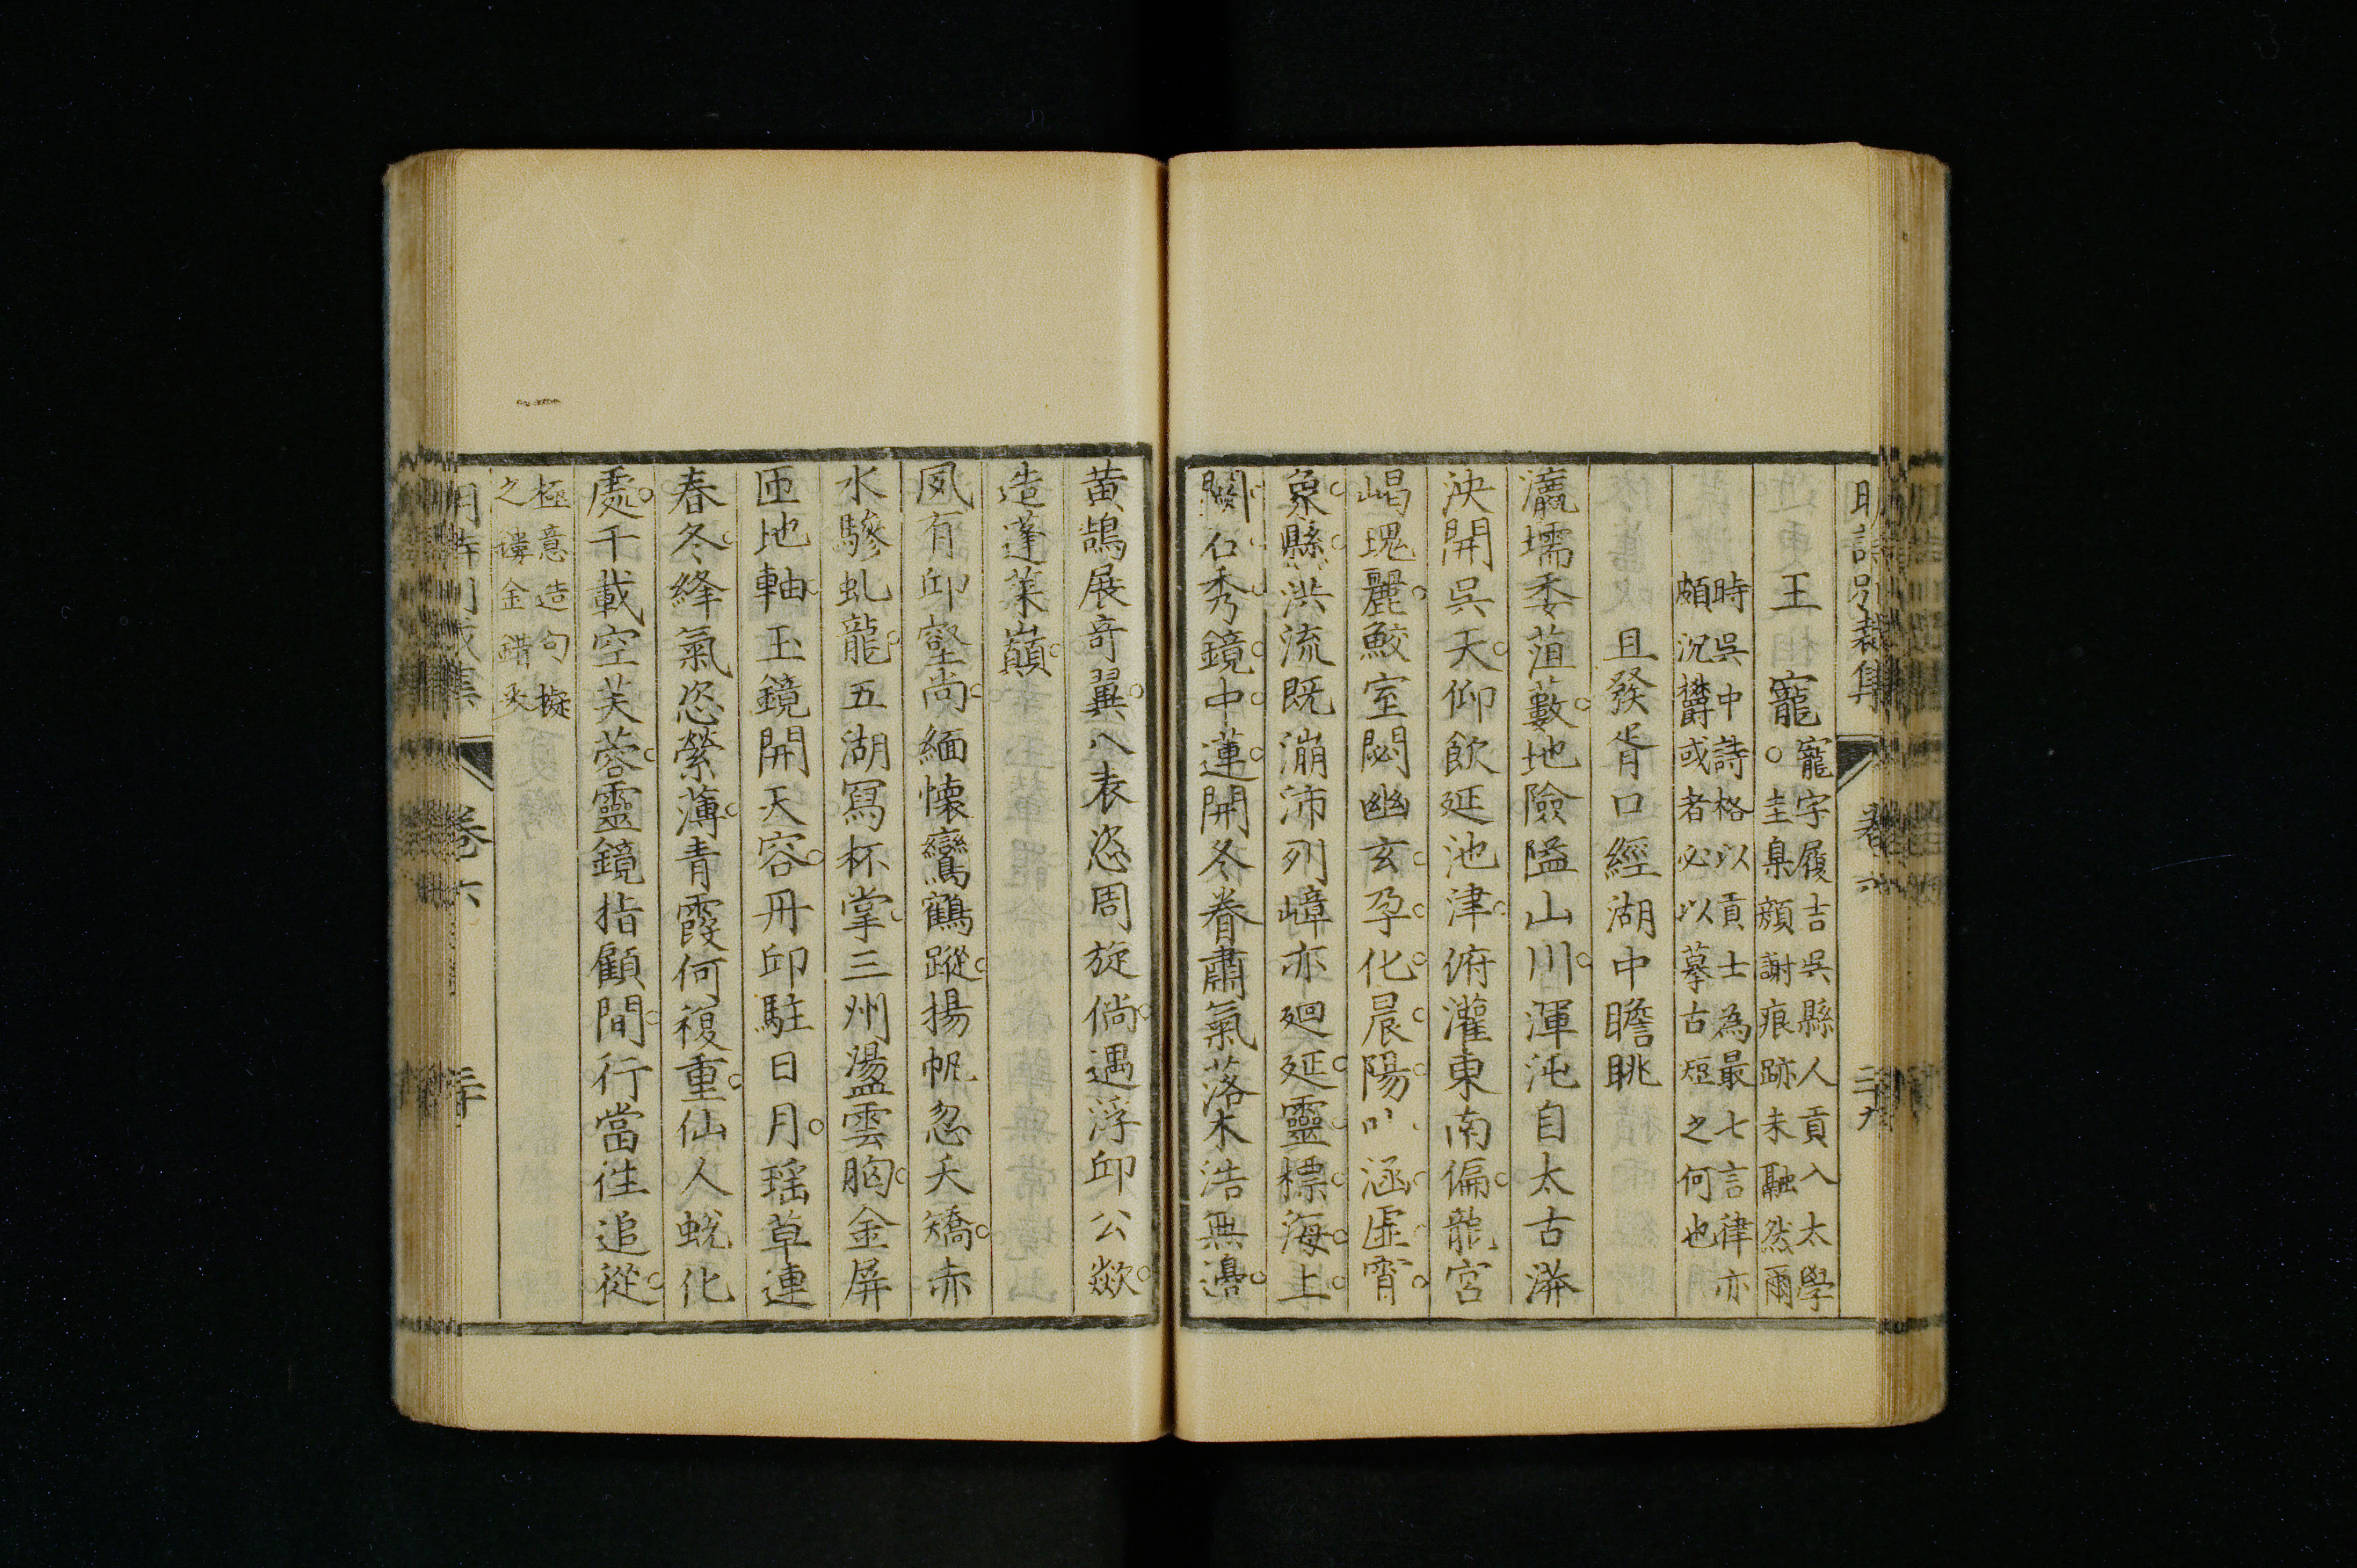 明詩別裁集 卷六 二十九
王 寵 寵字履吉吳縣人貢入太學
○圭臬顏謝痕跡未融然爾
時吳中詩格以貢士為最七言律亦
頗沉欝或者必以摹古短之何也
且發胥口經湖中瞻眺
瀛壖委菹藪地險隘山川渾沌自太古漭
泱開吳天仰飲延池津俯灌東南偏龍宮
崵瑰麗鮫室閟幽玄孕化晨陽吐涵虛霄
象縣洪流既漰沛列嶂亦廻延靈標海上
關石秀鏡中蓮開冬眷肅氣落木浩無邊
黃鵠展奇翼八表恣周旋倘遇浮邱公歘
造蓬萊巔
風有邱壑尚緬懷鸞鶴蹤揚帆忽夭矯赤
水驂虬龍五湖寫杯掌三州盪雲胸金屏
匝地軸玉鏡開天容丹邱駐日月瑤草連
春冬絳氣恣縈薄青霞何複重仙人蛻化
處千載空芙蓉靈鏡指顧間行當徃追從
極意造句擬
之鏤金錯采
明詩別裁集 卷六 三十